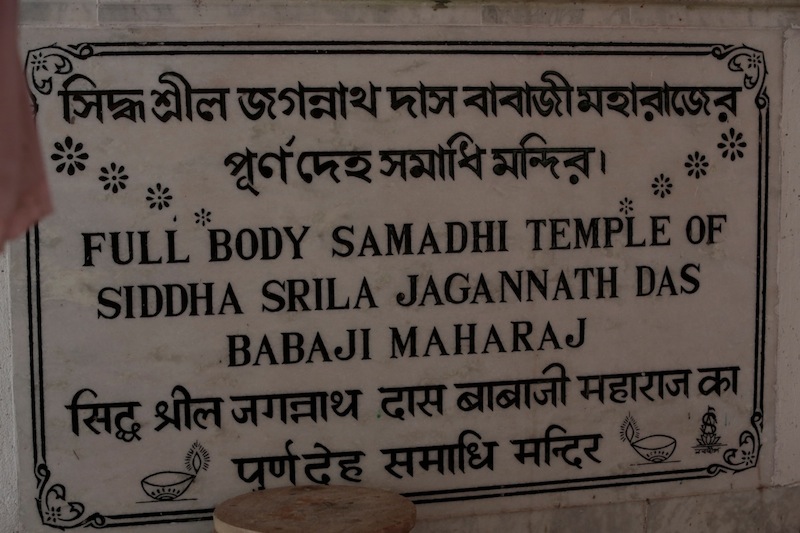 সিদ্ধ শ্রীল জগন্নাথ দাস বাবাজী মহারাজের
পূর্ণ দেহ সমাধি মন্দির।
FULL BODY SAMADHI TEMPLE OF
SIDDHA SRILA JAGANNATH DAS
BABAJI MAHARAJ
सिद्ध श्रील जगन्नाथ दास बाबाजी महाराज का
पुर्ण देह समाधि मन्दिर